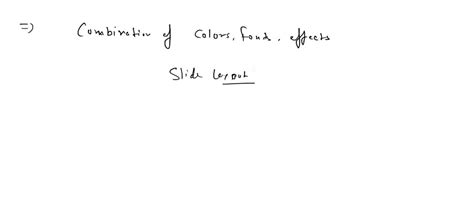 => Combination of Colors, fonts, effects
Slide layout